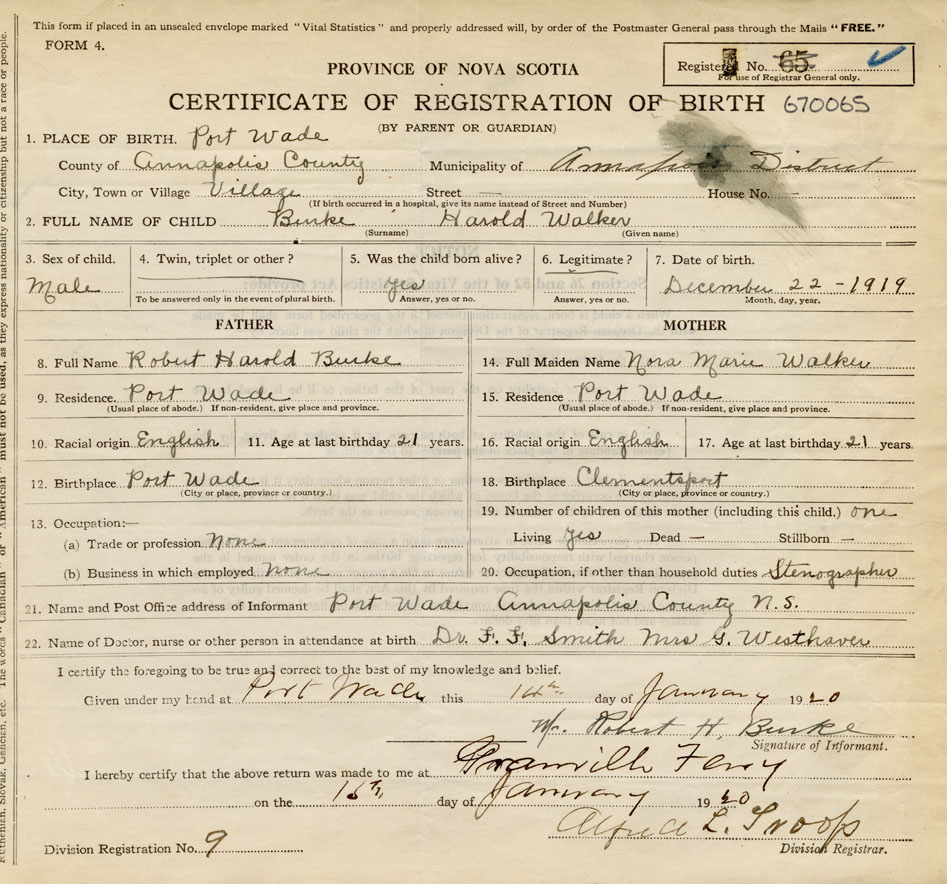 This form if placed in an unsealed envelope marked "Vital Statistics" and properly addressed will, by order of the Postmaster General pass through the Mails "FREE."
FORM 4.
Registered No. 65
For use of Registrar General only.
PROVINCE OF NOVA SCOTIA
CERTIFICATE OF REGISTRATION OF BIRTH 670065
(BY PARENT OR GUARDIAN)
1. PLACE OF BIRTH. Port Wade
County of Annapolis County Municipality of Annapolis District
City, Town or Village Village Street — House No. —
(If birth occurred in a hospital, give its name instead of Street and Number)
2. FULL NAME OF CHILD Burke Harold Walker
(Surname) (Given name)
3. Sex of child. 4. Twin, triplet or other? 5. Was the child born alive? 6. Legitimate? 7. Date of birth.
Male yes December 22 - 1919
To be answered only in the event of plural birth. Answer, yes or no. Answer, yes or no. Month, day, year.
FATHER MOTHER
8. Full Name Robert Harold Burke 14. Full Maiden Name Nora Marie Walker
9. Residence. Port Wade 15. Residence Port Wade
(Usual place of abode.) If non-resident, give place and province. (Usual place of abode.) If non-resident, give place and province.
10. Racial origin English 11. Age at last birthday 21 years. 16. Racial origin English 17. Age at last birthday 21 years.
12. Birthplace Port Wade 18. Birthplace Clementsport
(City or place, province or country.) (City or place, province or country.)
13. Occupation:— 19. Number of children of this mother (including this child.) one
(a) Trade or profession None Living yes Dead — Stillborn —
(b) Business in which employed none 20. Occupation, if other than household duties Stenographer
21. Name and Post Office address of Informant Port Wade Annapolis County N.S.
22. Name of Doctor, nurse or other person in attendance at birth Dr. F. F. Smith Mrs G. Westhaver
I certify the foregoing to be true and correct to the best of my knowledge and belief.
Given under my hand at Port Wade this 14th day of January 1920
Mr. Robert H. Burke
Signature of Informant.
I hereby certify that the above return was made to me at Granville Ferry
on the 16th day of January 1920
Alfred L. Troop
Division Registrar.
Division Registration No. 9